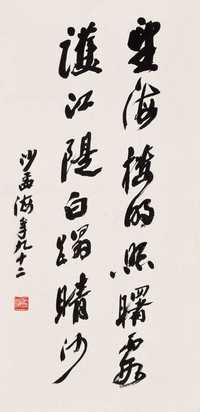 望海楼明照曙霞
护江隄白蹋晴沙
沙孟海年九十二